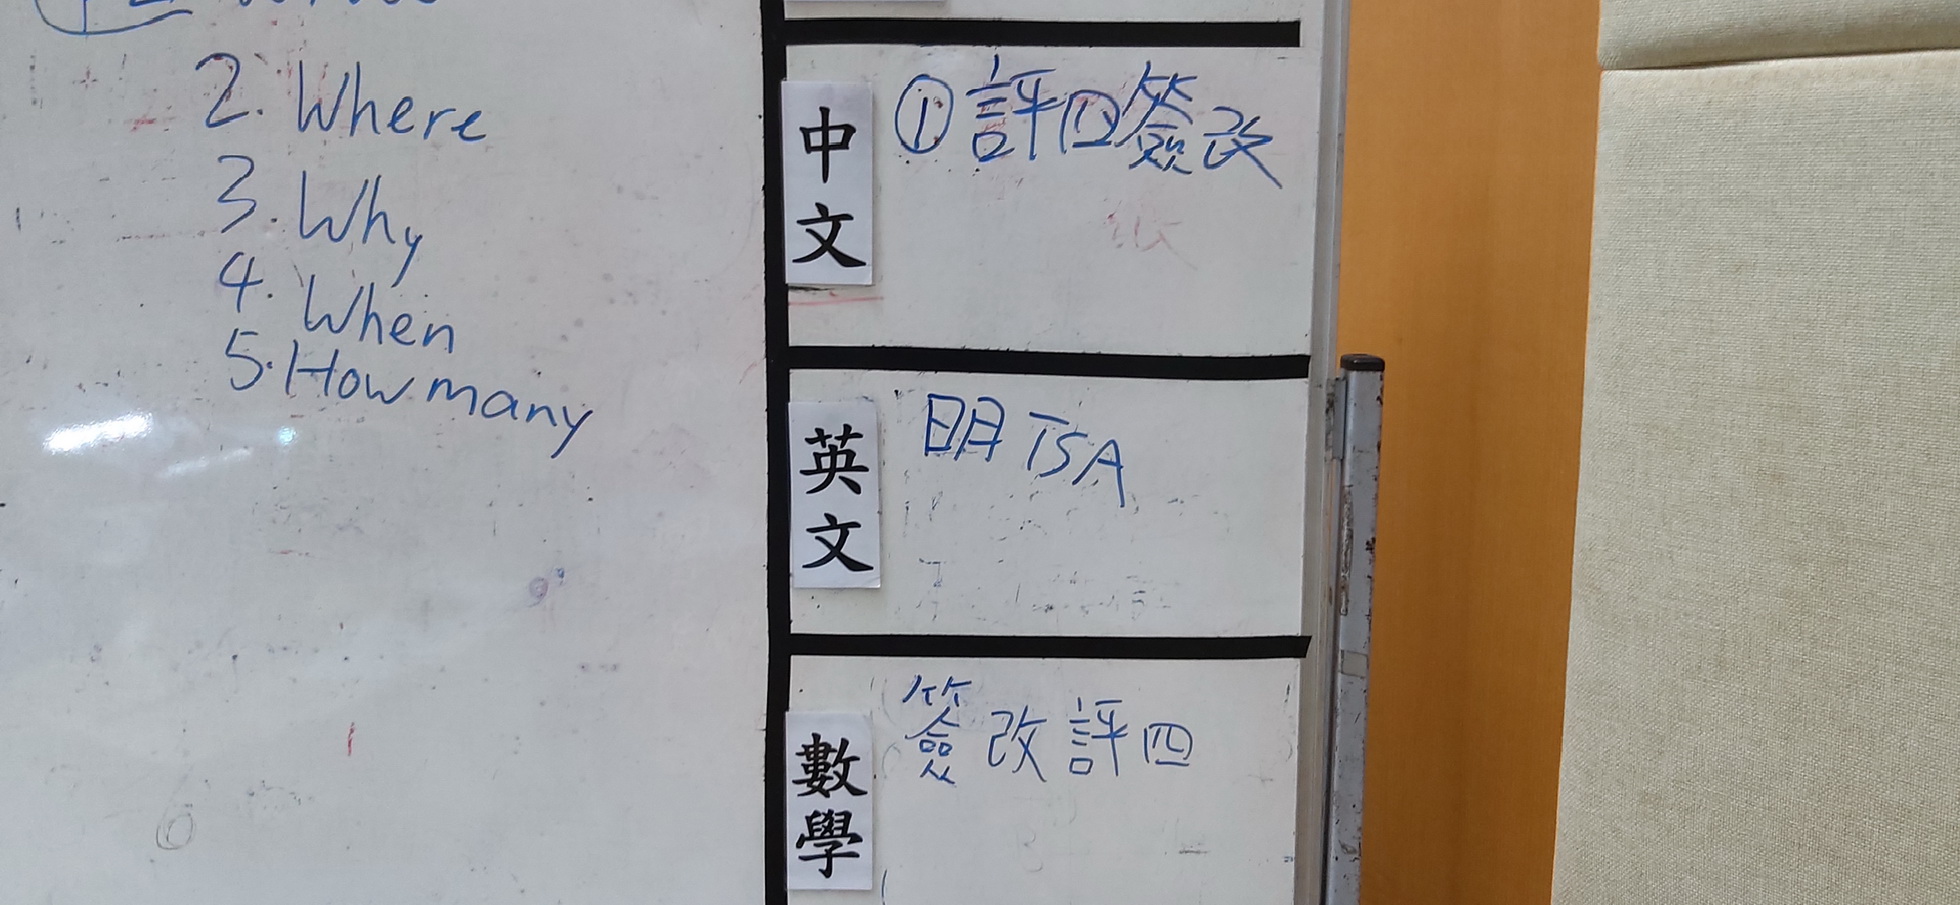 2. Where
3. Why
4. When
5. How many
中文
① 評四簽改
英文
明 TSA
數學
簽改評四